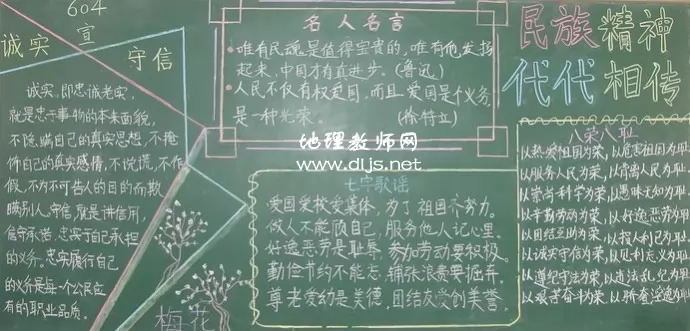 604
宣
诚实
守信
诚实,即忠诚老实,
就是忠于事物的本来面貌,
不隐瞒自己的真实思想,不掩
饰自己的真实感情,不说谎,不作
假,不为不可告人的目的而欺
瞒别人。守信,就是讲信用,
信守承诺,忠实于自己承担
的义务。忠实履行自己
的义务是每一个公民应
有的职业品质。
梅花
名人名言
·唯有民魂是值得宝贵的,唯有他发扬
起来,中国才有真进步。(鲁迅)
·人民不仅有权爱国,而且爱国是个义务,
是一种光荣。(徐特立)
地理教师网
www.dljs.net
七字歌谣
爱国爱校爱集体,为了祖国齐努力。
做人不能顾自己,服务他人记心里。
好逸恶劳是耻辱,参加劳动要积极。
勤俭节约不能忘,铺张浪费要摒弃。
尊老爱幼是美德,团结友爱创美誉。
民族精神
代代相传
八荣八耻
以热爱祖国为荣,以危害祖国为耻
以服务人民为荣,以背离人民为耻
以崇尚科学为荣,以愚昧无知为耻
以辛勤劳动为荣,以好逸恶劳为耻
以团结互助为荣,以损人利己为耻
以诚实守信为荣,以见利忘义为耻
以遵纪守法为荣,以违法乱纪为耻
以艰苦奋斗为荣,以骄奢淫逸为耻